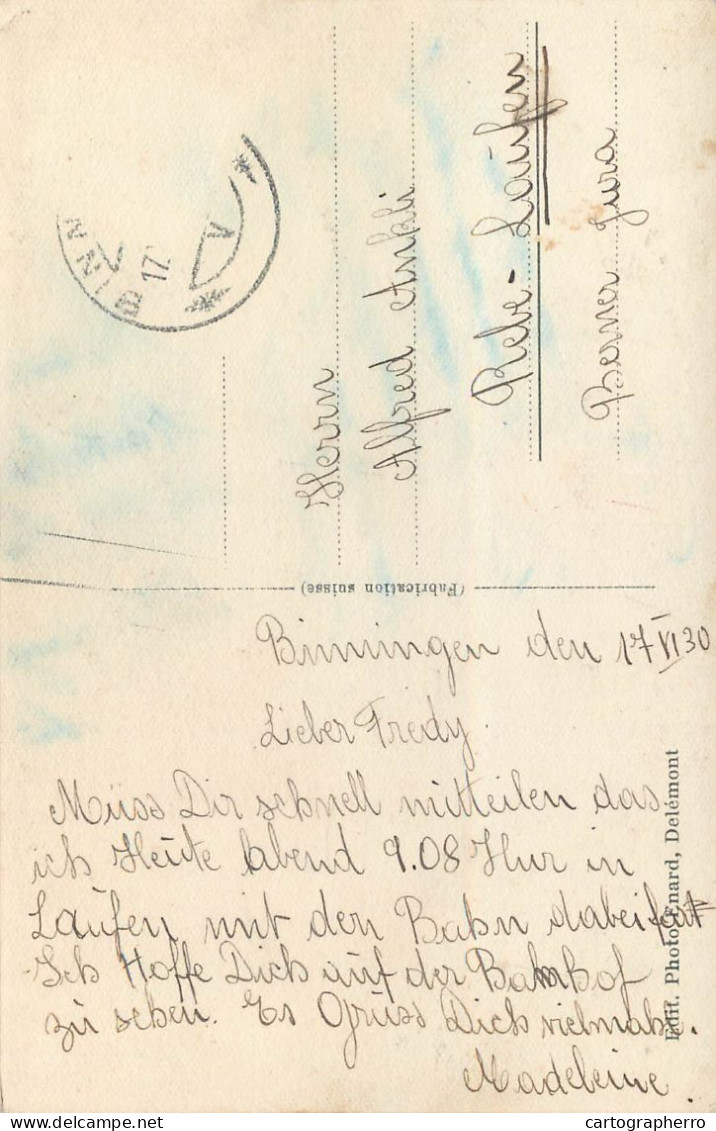 BINN
17.
V
Herrn
Alfred Ankli
Rebe - Laufen
Berner Jura
(Fabrication suisse)
Binningen den 17 VI 30
Lieber Fredy.
Müss Dir schnell mitteilen das
ich Heute Abend 9.08 Uhr in
Laufen mit der Bahn dabei fort
Ich Hoffe Dich auf der Bahnhof
zu sehen. Es Grüss Dich vielmahl.
Madeleine.
Edit. Photo Enard, Delémont
delcampe.net
cartographerro